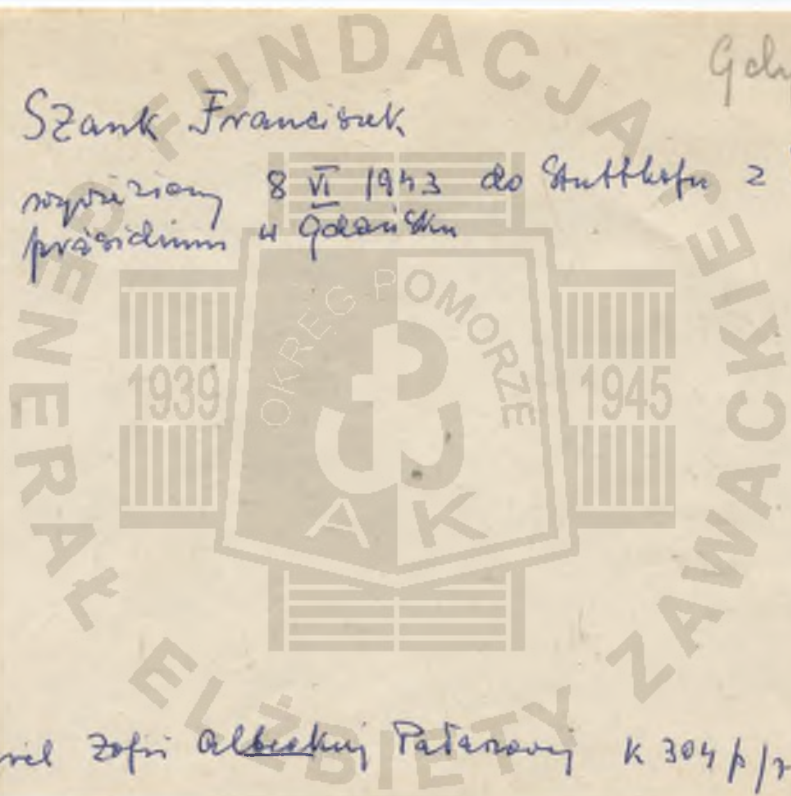 Gdn
Szank Franciszek
wywieziony 8 VI 1943 do Stutthofu z
präsidium w Gdańsku
rel Zofii Albeckiej Pałasowej K 304/p/
FUNDACJA
GENERAŁ ELŻBIETY ZAWACKIEJ
OKRĘG POMORZE
1939
1945
AK